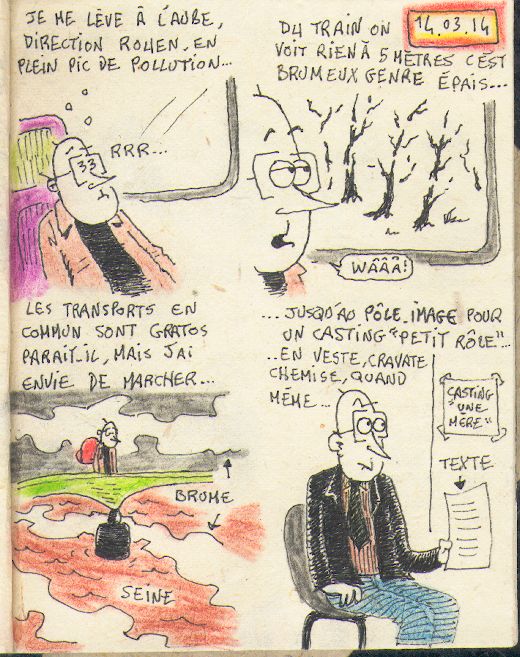 JE ME LÈVE À L'AUBE,
DIRECTION ROUEN, EN
PLEIN PIC DE POLLUTION...
RRR...
33
14.03.14
DU TRAIN ON
VOIT RIEN À 5 MÈTRES C'EST
BRUMEUX GENRE ÉPAIS...
WÂÂÂ!
LES TRANSPORTS EN
COMMUN SONT GRATOS
PARAIT-IL, MAIS J'AI
ENVIE DE MARCHER...
BRUME
SEINE
...JUSQU'AU PÔLE IMAGE POUR
UN CASTING "PETIT RÔLE"...
..EN VESTE, CRAVATE
CHEMISE, QUAND
MÊME...
CASTING
"UNE
MÈRE"
TEXTE